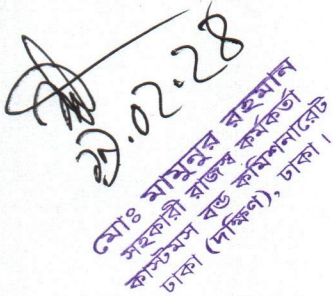 ২১.০২.২৪
মোঃ মামুনুর রহমান
সহকারী রাজস্ব কর্মকর্তা
কাস্টমস বন্ড কমিশনারেট
ঢাকা (দক্ষিণ), ঢাকা।